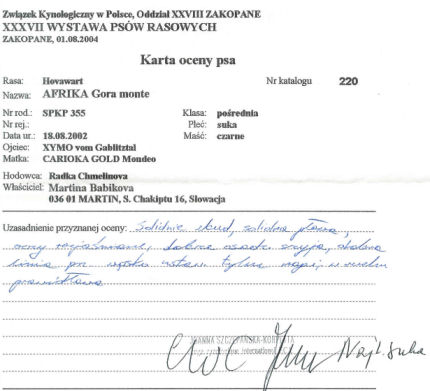 Związek Kynologiczny w Polsce, Oddział XXVIII ZAKOPANE
XXXVII WYSTAWA PSÓW RASOWYCH
ZAKOPANE, 01.08.2004
Karta oceny psa
Rasa: Hovawart Nr katalogu 220
Nazwa: AFRIKA Gora monte
Nr rod.: SPKP 355 Klasa: pośrednia
Nr rej.: Płeć: suka
Data ur.: 18.08.2002 Maść: czarne
Ojciec: XYMO vom Gablitztal
Matka: CARIOKA GOLD Mondeo
Hodowca: Radka Chmelinova
Właściciel: Martina Babikova
036 01 MARTIN, S. Chakiptu 16, Słowacja
Uzasadnienie przyznanej oceny: Solidnie zbud, solidna głowa,
oczy rozjaśnione, dobrze osadz szyja,
linia
prawidłowa
JOANNA SZCZEPAŃSKA-KORPETTA
International
CWC Najl. Suka